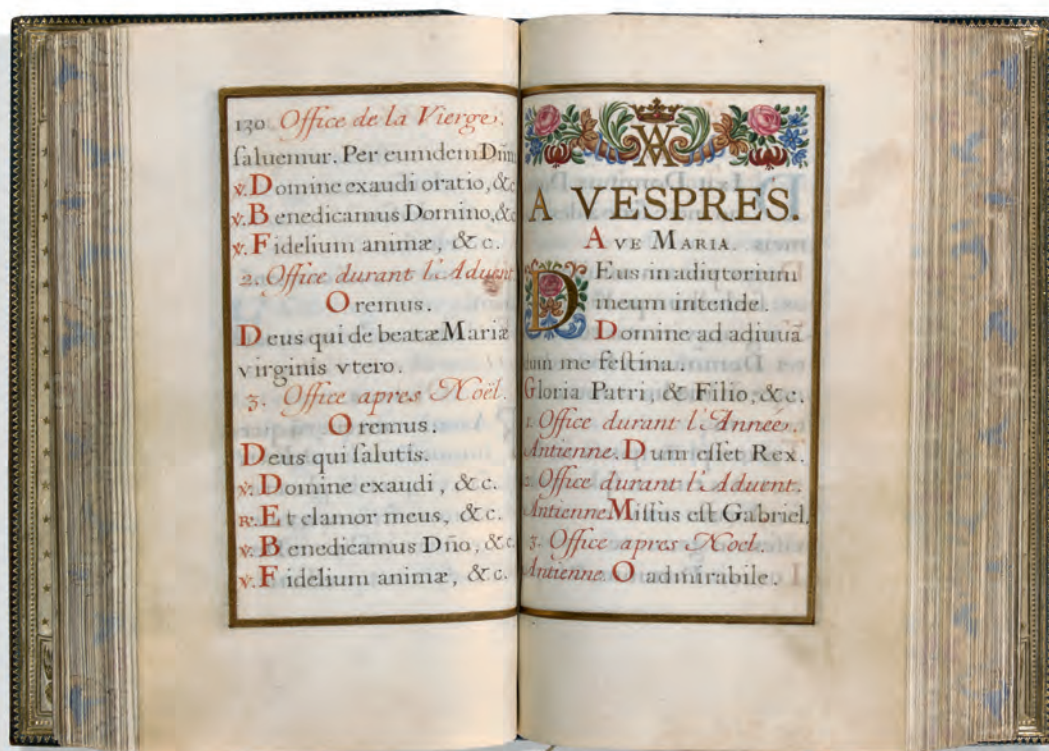 130 Office de la Vierge.
saluemur. Per eumdem Dñm
℣. Domine exaudi oratio, &c
℣. Benedicamus Domino, &c
℣. Fidelium animæ, &c.
2. Office durant l'Aduent
Oremus.
Deus qui de beatæ Mariæ
virginis vtero.
3. Office apres Noël.
Oremus.
Deus qui salutis.
℣. Domine exaudi, &c.
℟. Et clamor meus, &c.
℣. Benedicamus Dño, &c.
℣. Fidelium animæ, &c.
A VESPRES.
AVE MARIA.
DEus in adiutorium
meum intende.
Domine ad adiuuã
dum me festina.
Gloria Patri, & Filio, &c.
1. Office durant l'Année.
Antienne. Dum esset Rex.
2. Office durant l'Aduent.
Antienne Missus est Gabriel.
3. Office apres Noel.
Antienne. O admirabile.